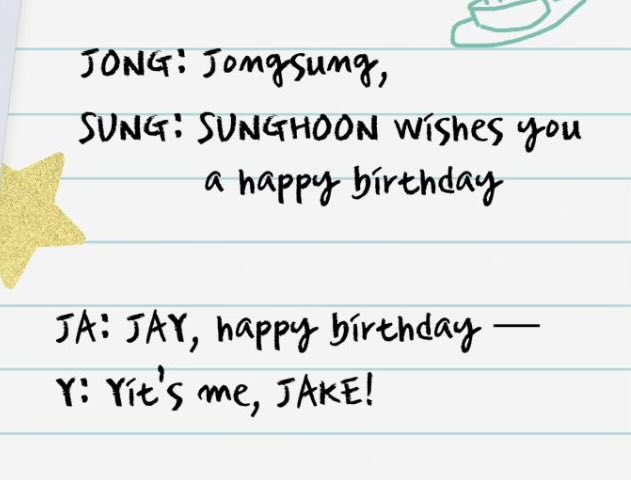 JONG: Jongsung,
SUNG: SUNGHOON wishes you
a happy birthday
JA: JAY, happy birthday —
Y: Yit's me, JAKE!